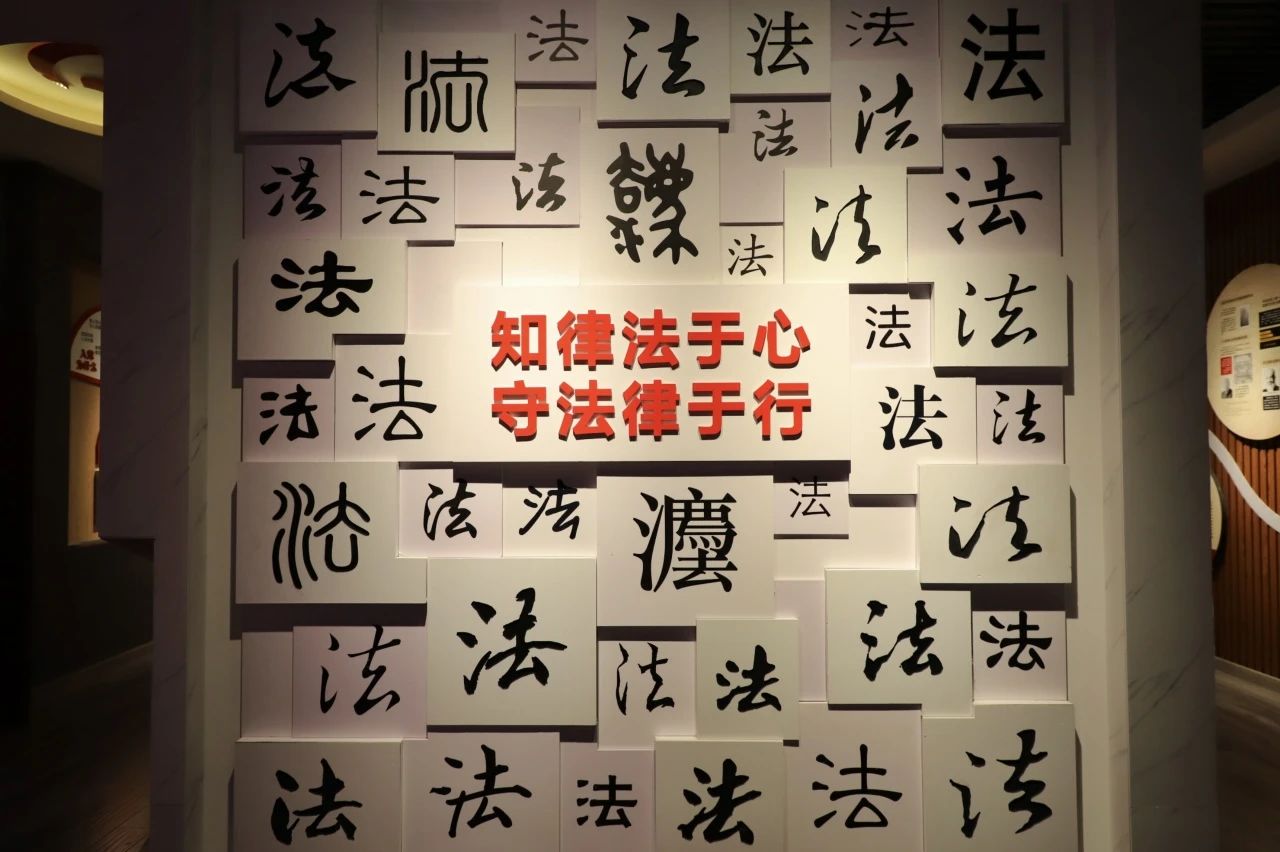 法 法 法 法 法 法 法
法 法
法 法 法 法 法 法
法 法
知律法于心
守法律于行
法 法
法 法 法 法
法 法 法 灋 法 法
法 法 法 法 法 法
法 法 法 法 法 法